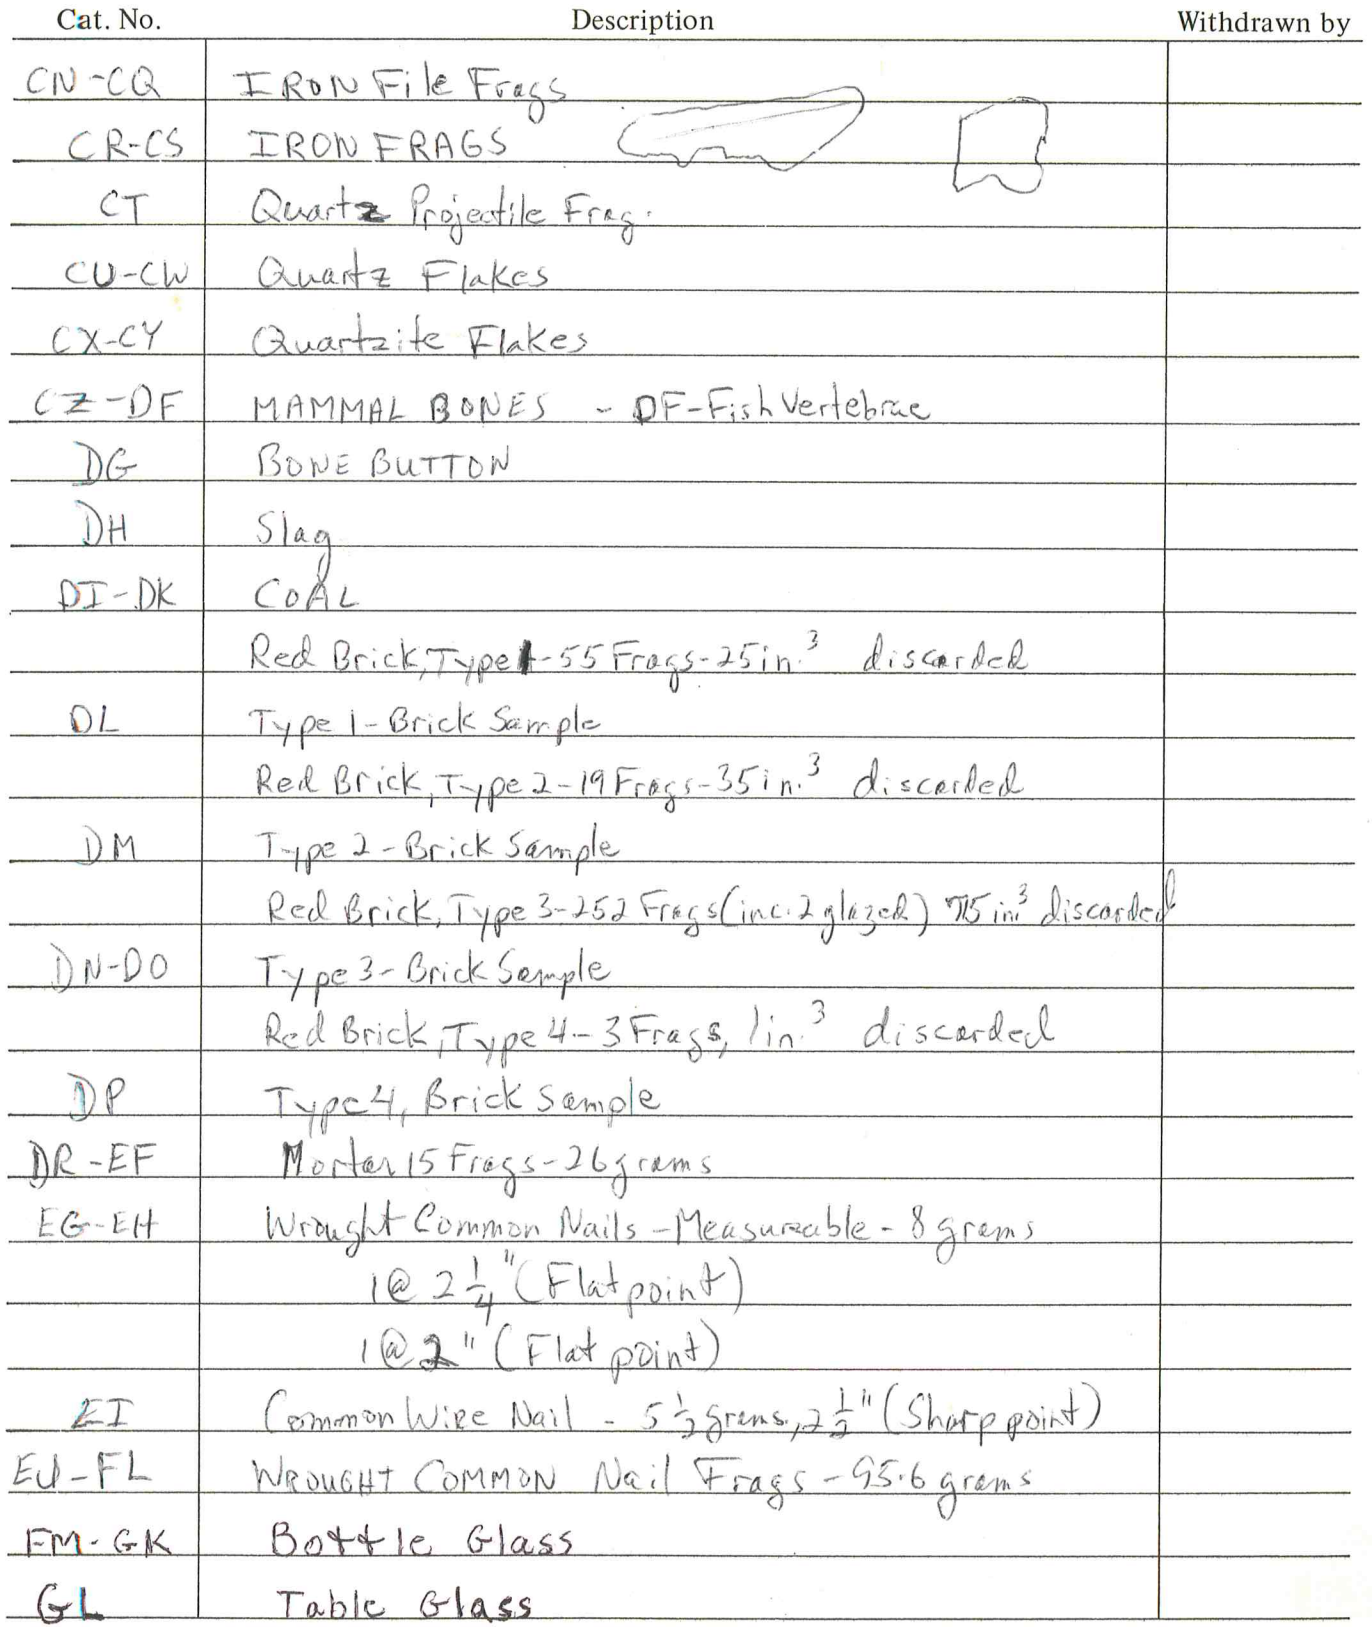 Cat. No. Description Withdrawn by
CN-CQ IRON File Frags
CR-CS IRON FRAGS
CT Quartz Projectile Frag.
CU-CW Quartz Flakes
CX-CY Quartzite Flakes
CZ-DF MAMMAL BONES - DF-Fish Vertebrae
DG BONE BUTTON
DH Slag
DI-DK COAL
Red Brick, Type 1-55 Frags-25 in.³ discarded
DL Type 1-Brick Sample
Red Brick, Type 2-19 Frags-35 in.³ discarded
DM Type 2-Brick Sample
Red Brick, Type 3-252 Frags (inc. 2 glazed) in.³ discarded
DN-DO Type 3-Brick Sample
Red Brick, Type 4-3 Frags, 1 in.³ discarded
DP Type 4, Brick Sample
DR-EF Mortar 15 Frags-26 grams
EG-EH Wrought Common Nails - Measureable - 8 grams
1 @ 2 1/4" (Flat point)
1 @ 2" (Flat point)
EI Common Wire Nail - 5 1/2 grams, 2 1/2" (Sharp point)
WROUGHT COMMON Nail Frags - 95.6 grams
FM-GK Bottle Glass
GL Table Glass